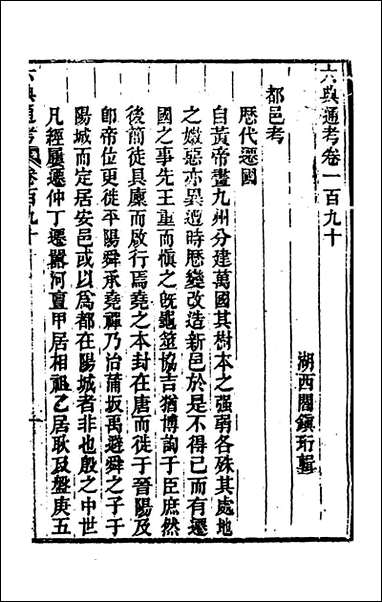 六典通考卷一百九十
湖西閻鎮珩輯
都邑考
歷代遷國
自黃帝畫九州分建萬國其樹本之强弱各殊其處地
之媺惡亦異遭時歷變改造新邑於是不得已而有遷
國之事先王重而愼之既龜筮協吉猶博詢于臣庶然
後前徒具廩而啟行焉堯之本封在唐而徙于晉陽及
卽帝位更徙平陽舜承堯禪乃治蒲坂禹避舜之子于
陽城而定居安邑或以爲都在陽城者非也殷之中世
凡經屢遷仲丁遷嚻河亶甲居相祖乙居耿及盤庚五
六典通考 卷百九十